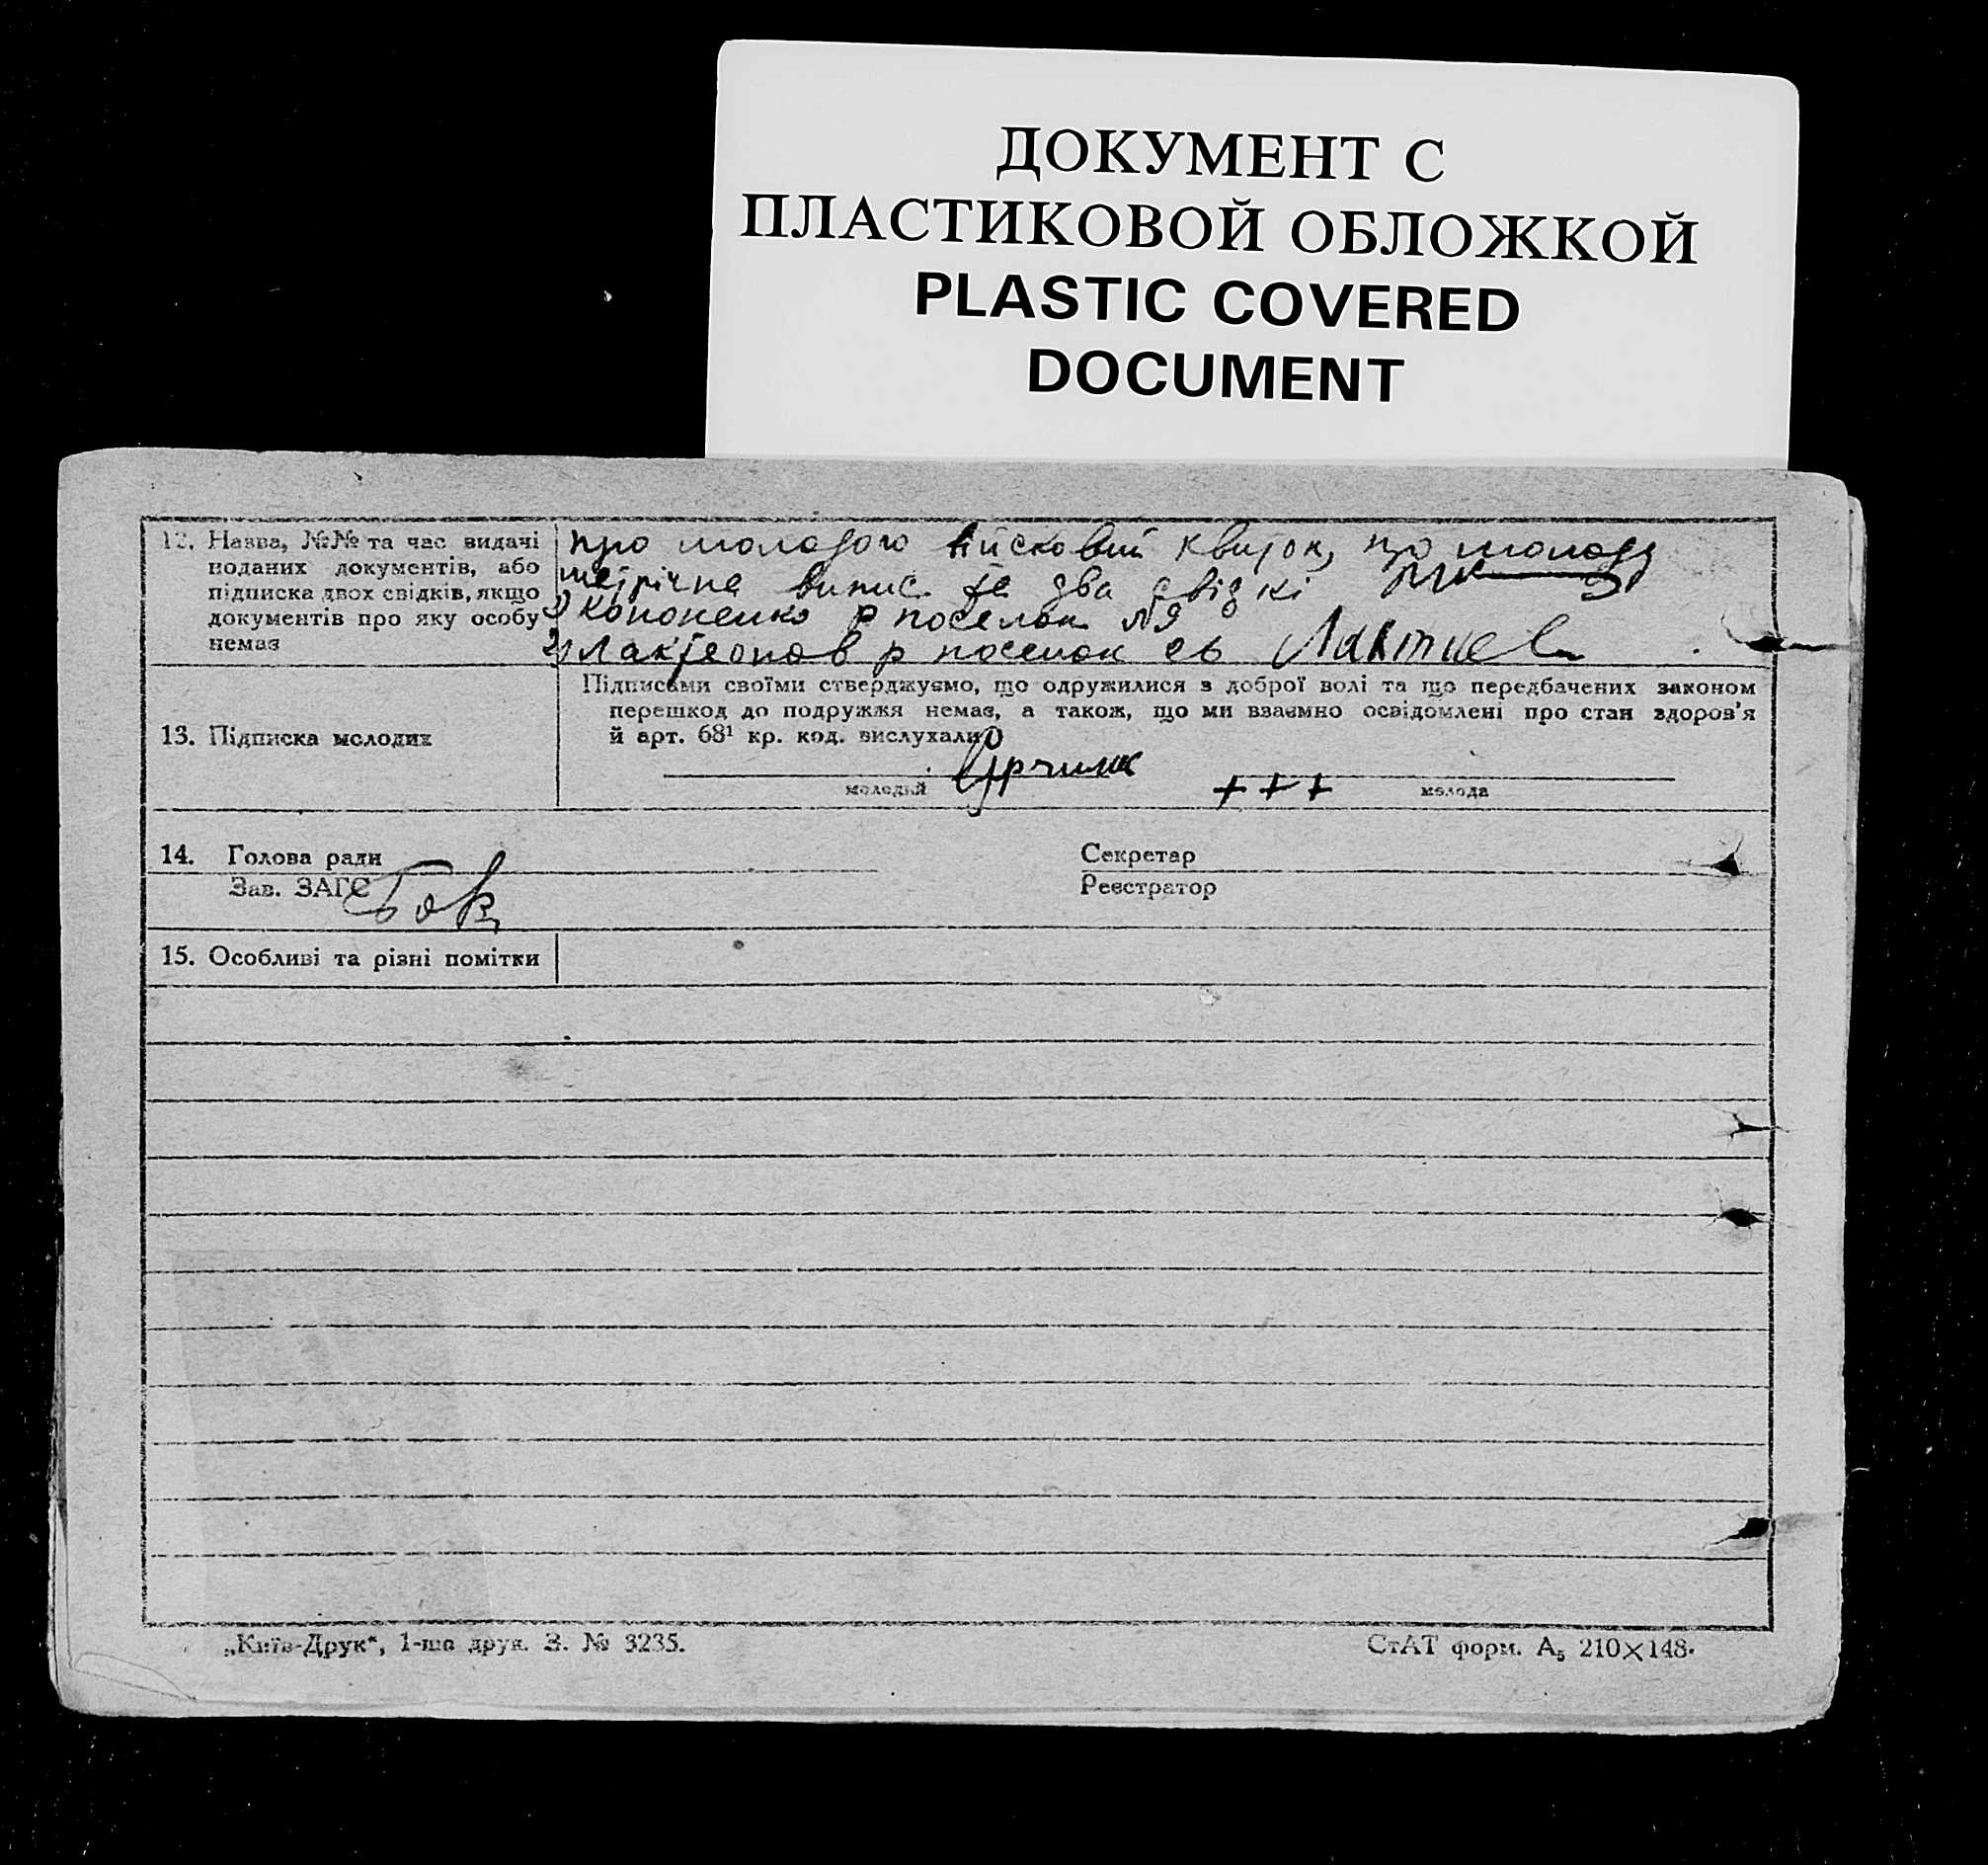 ДОКУМЕНТ С
ПЛАСТИКОВОЙ ОБЛОЖКОЙ
PLASTIC COVERED
DOCUMENT
12. Назва, №№ та час видачі
поданих документів, або
підписка двох свідків, якщо
документів про яку особу
немає
про молодого військовий квиток, про молоду
метрічне випис та два свідкі
1) Кононенко р поселок №9
2) Лактеонов р поселок
Підписами своїми стверджуємо, що одружилися з доброї волі та що передбачених законом
перешкод до подружжя немає, а також, що ми взаємно освідомлені про стан здоров'я
й арт. 68¹ кр. код. вислухали
13. Підписка молодих
+ + +
молодий молода
14. Голова ради Секретар
Зав. ЗАГС Реєстратор
15. Особливі та різні помітки
„Київ-Друк“, 1-ша друк. З. № 3235.
СтАТ форм. А₅ 210×148.